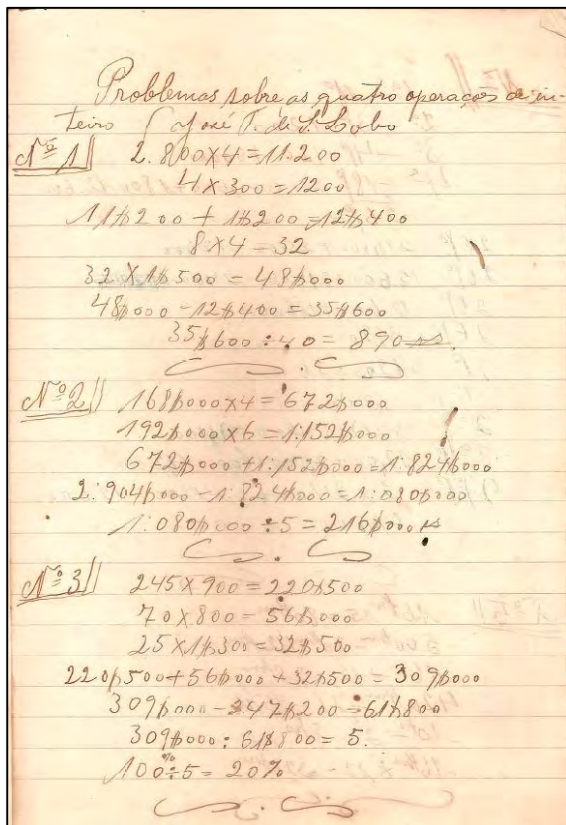 Problemas sobre as quatro operações de in-
teiro (José T. de S. Lobo
Nº 1|| 2.800x4=11.200
4x300=1200
11$200 + 1$200=12$400
8x4=32
32x1$500=48$000
48$000-12$400=35$600
35$600÷40=890rs.
Nº 2|| 168$000x4=672$000
192$000x6=1:152$000
672$000+1:152$000=1:824$000
2:904$000-1:824$000=1:080$000
1:080$000÷5=216$000rs
Nº 3|| 245x900=220$500
70x800=56$000
25x1$300=32$500
220$500+56$000+32$500=309$000
309$000-247$200=61$800
309$000:61$800=5.
100%÷5=20%